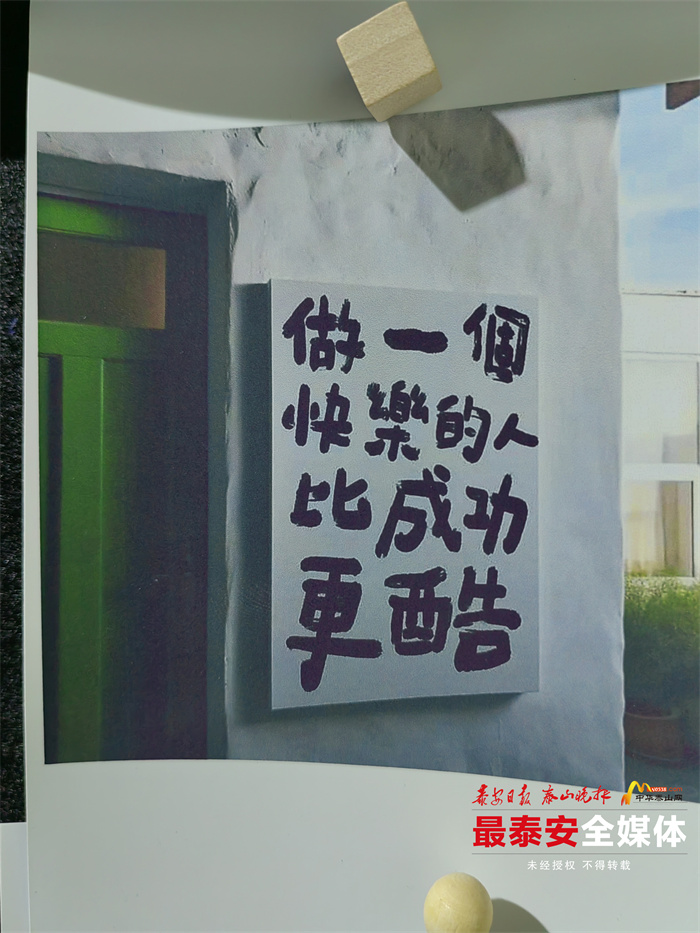 做一個
快樂的人
比成功
更酷
泰安日报 泰山晚报 中华泰山网
最泰安全媒体
未经授权 不得转载